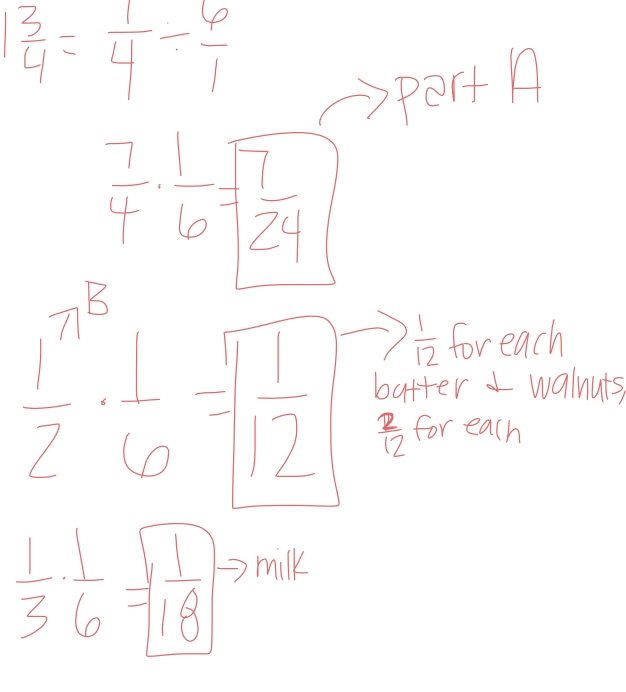 1 3/4 = 7/4 ÷ 6/1
→ part A
7/4 · 1/6 = 7/24
↗ B
1/2 · 1/6 = 1/12 → 1/12 for each
batter & walnuts,
2/12 for each
1/3 · 1/6 = 1/18 → milk